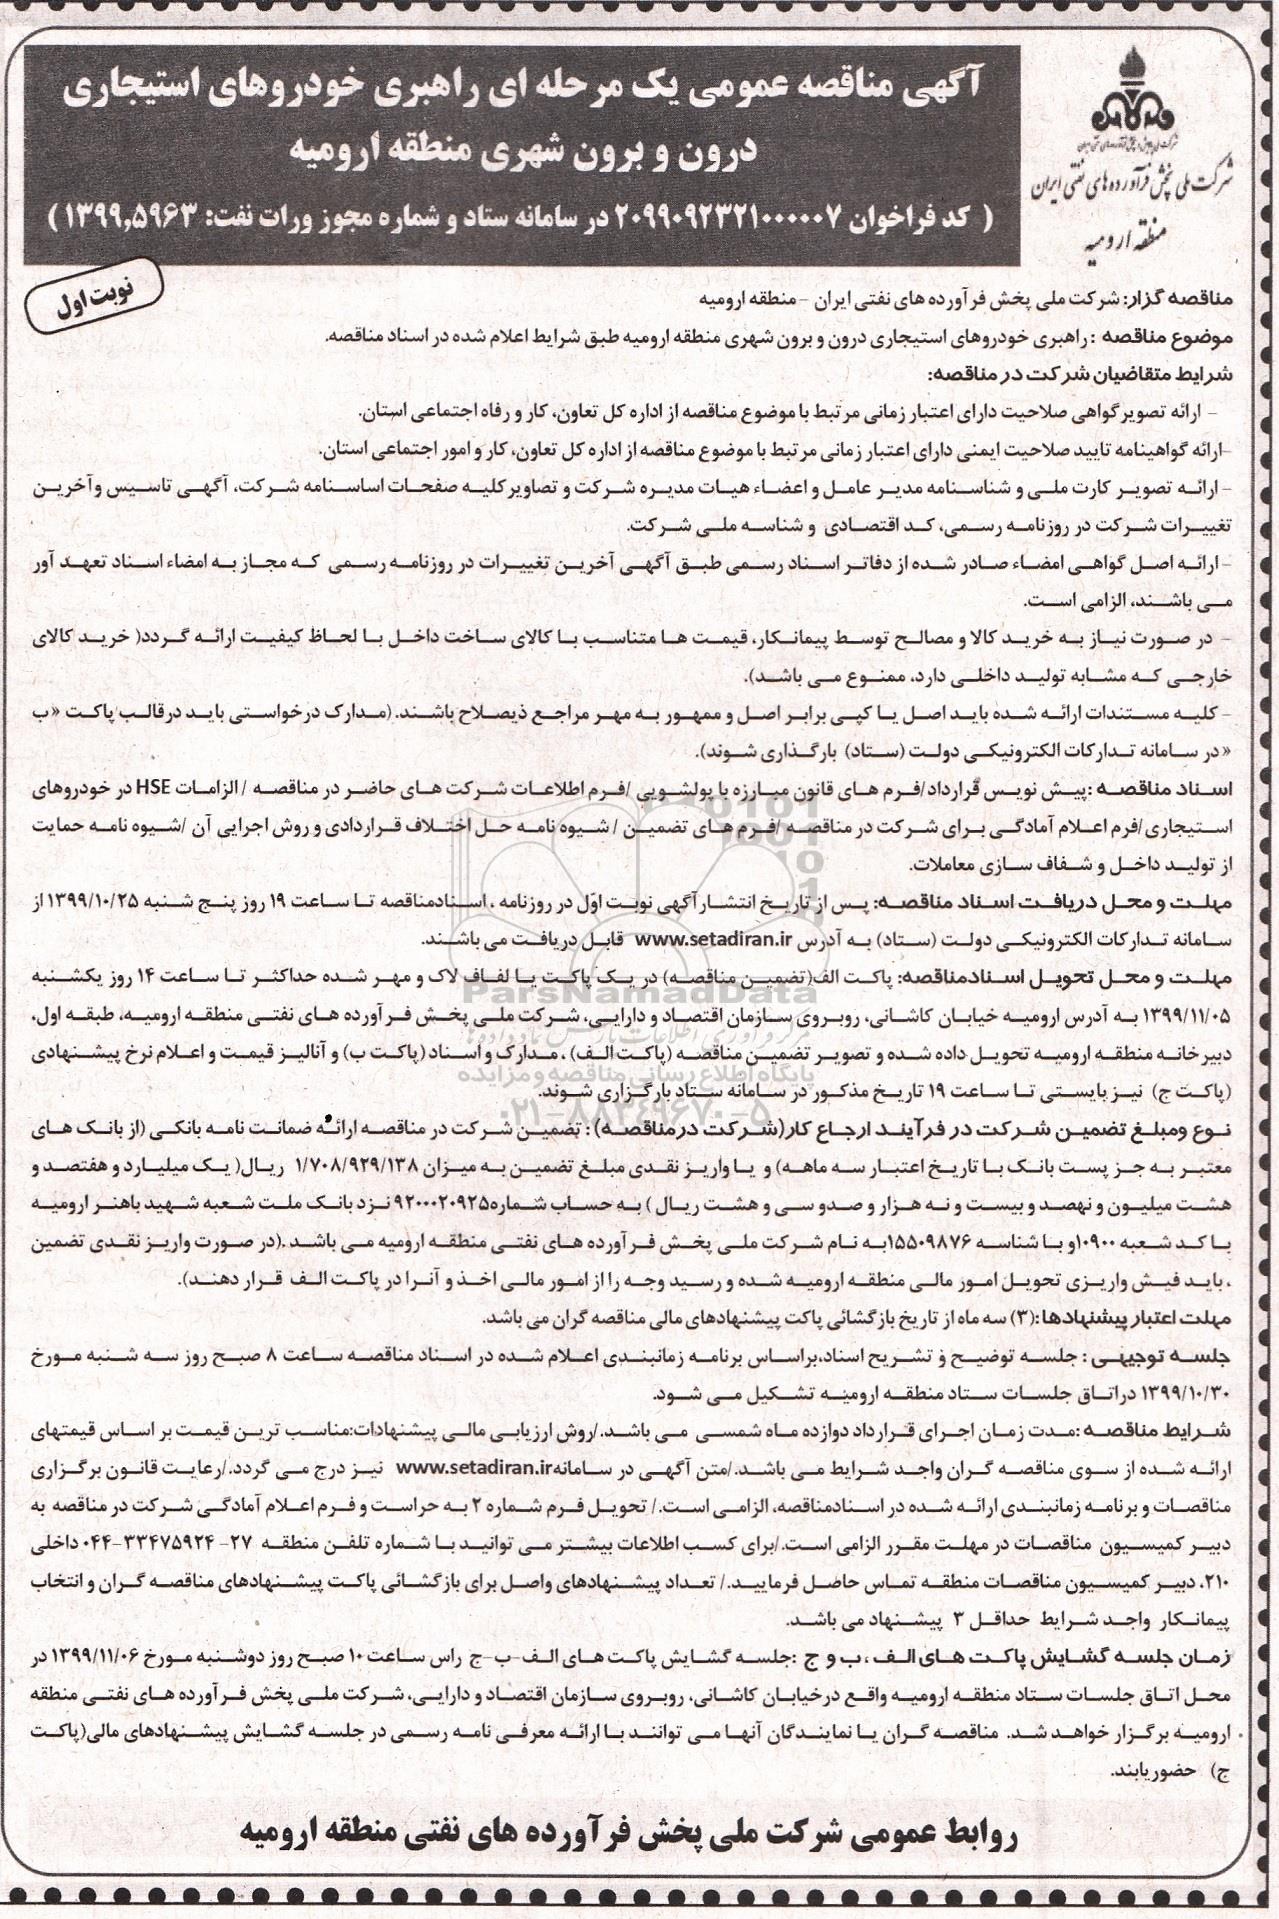 آگهی مناقصه عمومی یک مرحله ای راهبری خودروهای استیجاری
درون و برون شهری منطقه ارومیه
( کد فراخوان ۲۰۹۹۰۹۲۳۲۱۰۰۰۰۰۷ در سامانه ستاد و شماره مجوز ورات نفت: ۱۳۹۹,۵۹۶۳ )
شرکت ملی پخش فرآورده های نفتی ایران
منطقه ارومیه
نوبت اول
مناقصه گزار: شرکت ملی پخش فرآورده های نفتی ایران – منطقه ارومیه
موضوع مناقصه : راهبری خودروهای استیجاری درون و برون شهری منطقه ارومیه طبق شرایط اعلام شده در اسناد مناقصه.
شرایط متقاضیان شرکت در مناقصه:
– ارائه تصویر گواهی صلاحیت دارای اعتبار زمانی مرتبط با موضوع مناقصه از اداره کل تعاون، کار و رفاه اجتماعی استان.
–ارائه گواهینامه تایید صلاحیت ایمنی دارای اعتبار زمانی مرتبط با موضوع مناقصه از اداره کل تعاون، کار و امور اجتماعی استان.
– ارائه تصویر کارت ملی و شناسنامه مدیر عامل و اعضاء هیات مدیره شرکت و تصاویر کلیه صفحات اساسنامه شرکت، آگهی تاسیس و آخرین
تغییرات شرکت در روزنامه رسمی، کد اقتصادی و شناسه ملی شرکت.
– ارائه اصل گواهی امضاء صادر شده از دفاتر اسناد رسمی طبق آگهی آخرین تغییرات در روزنامه رسمی که مجاز به امضاء اسناد تعهد آور
می باشند، الزامی است.
– در صورت نیاز به خرید کالا و مصالح توسط پیمانکار، قیمت ها متناسب با کالای ساخت داخل با لحاظ کیفیت ارائه گردد( خرید کالای
خارجی که مشابه تولید داخلی دارد، ممنوع می باشد).
– کلیه مستندات ارائه شده باید اصل یا کپی برابر اصل و ممهور به مهر مراجع ذیصلاح باشند. (مدارک درخواستی باید در قالب پاکت «ب
« در سامانه تدارکات الکترونیکی دولت (ستاد) بارگذاری شوند).
اسناد مناقصه :پیش نویس قرارداد/فرم های قانون مبارزه با پولشویی /فرم اطلاعات شرکت های حاضر در مناقصه / الزامات HSE در خودروهای
استیجاری/فرم اعلام آمادگی برای شرکت در مناقصه /فرم های تضمین / شیوه نامه حل اختلاف قراردادی و روش اجرایی آن /شیوه نامه حمایت
از تولید داخل و شفاف سازی معاملات.
مهلت و محل دریافت اسناد مناقصه: پس از تاریخ انتشار آگهی نوبت اوّل در روزنامه ، اسنادمناقصه تا ساعت ۱۹ روز پنج شنبه ۱۳۹۹/۱۰/۲۵ از
سامانه تدارکات الکترونیکی دولت (ستاد) به آدرس www.setadiran.ir قابل دریافت می باشند.
مهلت و محل تحویل اسنادمناقصه: پاکت الف(تضمین مناقصه) در یک پاکت یا لفاف لاک و مهر شده حداکثر تا ساعت ۱۴ روز یکشنبه
۱۳۹۹/۱۱/۰۵ به آدرس ارومیه خیابان کاشانی، روبروی سازمان اقتصاد و دارایی، شرکت ملی پخش فرآورده های نفتی منطقه ارومیه، طبقه اول،
دبیرخانه منطقه ارومیه تحویل داده شده و تصویر تضمین مناقصه (پاکت الف) ، مدارک و اسناد (پاکت ب) و آنالیز قیمت و اعلام نرخ پیشنهادی
(پاکت ج) نیز بایستی تا ساعت ۱۹ تاریخ مذکور در سامانه ستاد بارگزاری شوند.
نوع ومبلغ تضمین شرکت در فرآیند ارجاع کار(شرکت درمناقصه) : تضمین شرکت در مناقصه ارائه ضمانت نامه بانکی (از بانک های
معتبر به جز پست بانک با تاریخ اعتبار سه ماهه) و یا واریز نقدی مبلغ تضمین به میزان ۱/۷۰۸/۹۲۹/۱۳۸ ریال( یک میلیارد و هفتصد و
هشت میلیون و نهصد و بیست و نه هزار و صدو سی و هشت ریال ) به حساب شماره۹۲۰۰۰۲۰۹۲۵ نزد بانک ملت شعبه شهید باهنر ارومیه
با کد شعبه ۱۰۹۰۰و با شناسه ۱۵۵۰۹۸۷۶به نام شرکت ملی پخش فرآورده های نفتی منطقه ارومیه می باشد .(در صورت واریز نقدی تضمین
، باید فیش واریزی تحویل امور مالی منطقه ارومیه شده و رسید وجه را از امور مالی اخذ و آنرا در پاکت الف قرار دهند).
مهلت اعتبار پیشنهادها :(۳) سه ماه از تاریخ بازگشائی پاکت پیشنهادهای مالی مناقصه گران می باشد.
جلسه توجیهی : جلسه توضیح و تشریح اسناد،براساس برنامه زمانبندی اعلام شده در اسناد مناقصه ساعت ۸ صبح روز سه شنبه مورخ
۱۳۹۹/۱۰/۳۰ دراتاق جلسات ستاد منطقه ارومیه تشکیل می شود.
شرایط مناقصه :مدت زمان اجرای قرارداد دوازده ماه شمسی می باشد./روش ارزیابی مالی پیشنهادات:مناسب ترین قیمت بر اساس قیمتهای
ارائه شده از سوی مناقصه گران واجد شرایط می باشد./متن آگهی در سامانهwww.setadiran.ir نیز درج می گردد./رعایت قانون برگزاری
مناقصات و برنامه زمانبندی ارائه شده در اسنادمناقصه، الزامی است./ تحویل فرم شماره ۲ به حراست و فرم اعلام آمادگی شرکت در مناقصه به
دبیر کمیسیون مناقصات در مهلت مقرر الزامی است./برای کسب اطلاعات بیشتر می توانید با شماره تلفن منطقه ۲۷- ۰۴۴-۳۳۴۷۵۹۲۴ داخلی
۲۱۰، دبیر کمیسیون مناقصات منطقه تماس حاصل فرمایید./ تعداد پیشنهادهای واصل برای بازگشائی پاکت پیشنهادهای مناقصه گران و انتخاب
پیمانکار واجد شرایط حداقل ۳ پیشنهاد می باشد.
زمان جلسه گشایش پاکت های الف ، ب و ج :جلسه گشایش پاکت های الف-ب-ج راس ساعت ۱۰ صبح روز دوشنبه مورخ ۱۳۹۹/۱۱/۰۶ در
محل اتاق جلسات ستاد منطقه ارومیه واقع درخیابان کاشانی، روبروی سازمان اقتصاد و دارایی، شرکت ملی پخش فرآورده های نفتی منطقه
ارومیه برگزار خواهد شد. مناقصه گران یا نمایندگان آنها می توانند با ارائه معرفی نامه رسمی در جلسه گشایش پیشنهادهای مالی(پاکت
ج) حضور یابند.
روابط عمومی شرکت ملی پخش فرآورده های نفتی منطقه ارومیه
ParsNamadData
پایگاه اطلاع رسانی مناقصه و مزایده
۰۲۱-۸۸۳۴۹۶۷۰-۵